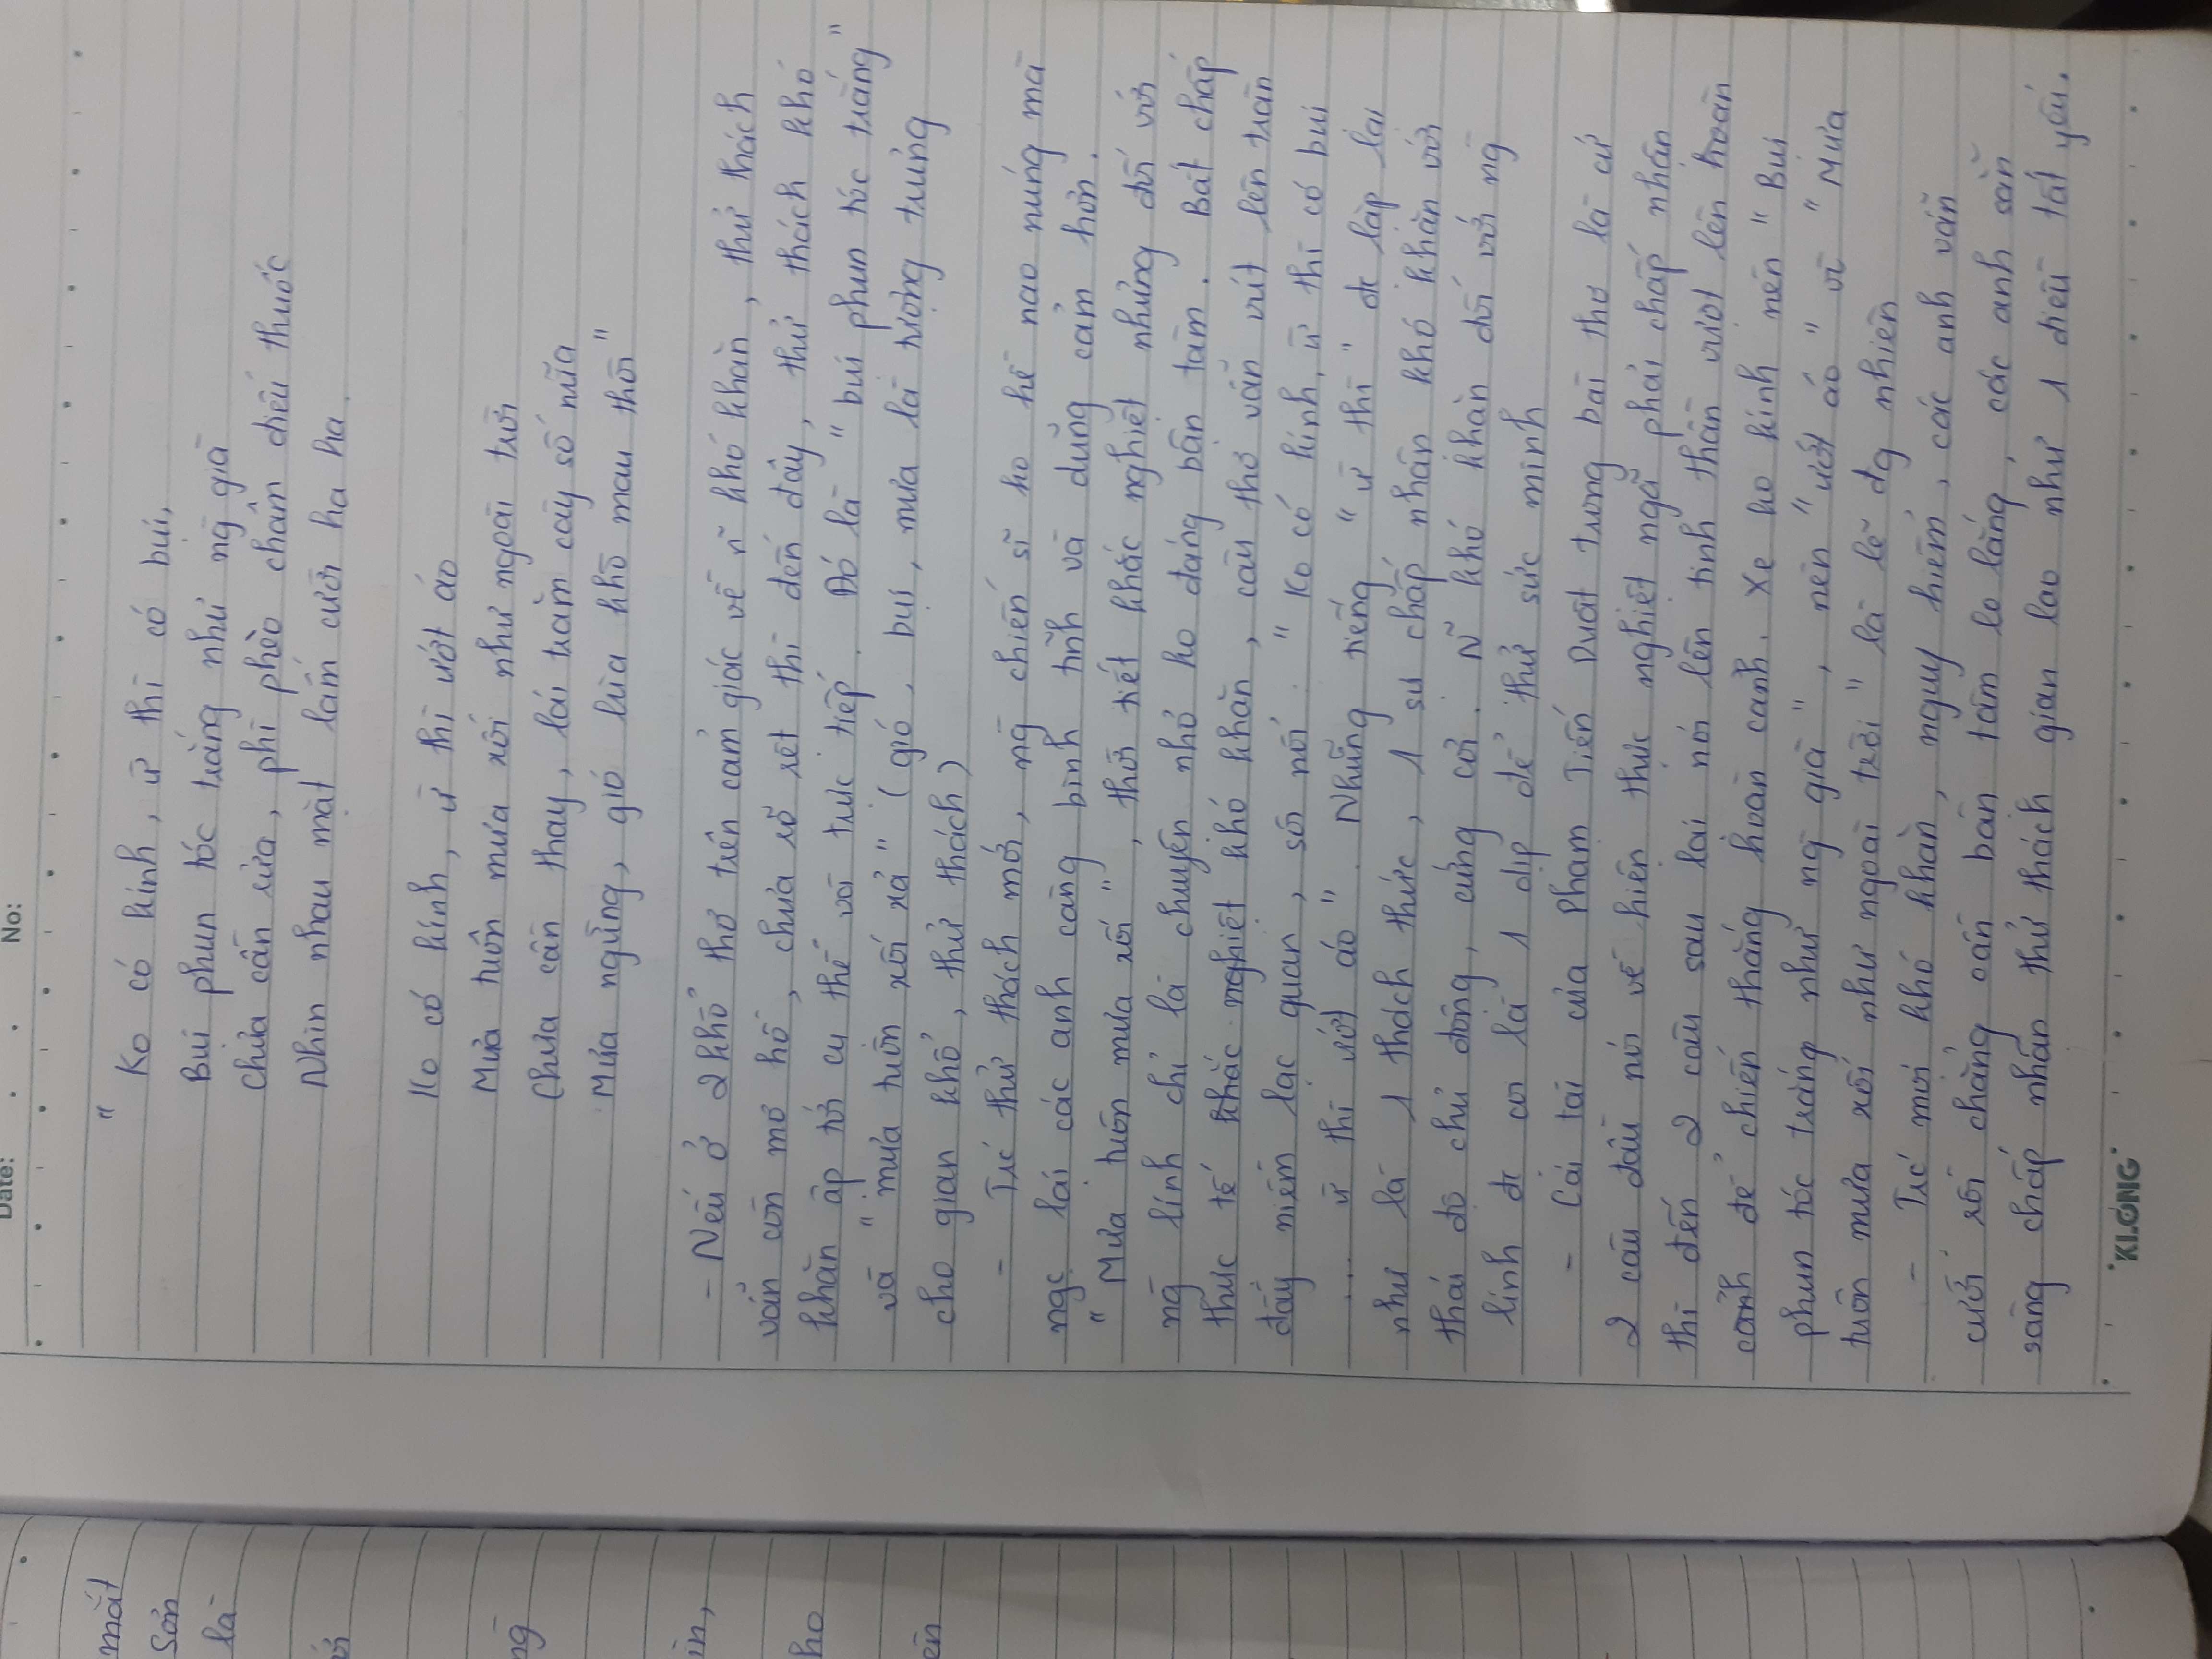 Date: . . No:
mắt
Sơn
là
ới
ng
in,
ho
ên
"Ko có kính, ừ thì có bụi,
Bụi phun tóc trắng như ng già
Chưa cần rửa, phì phèo châm điếu thuốc
Nhìn nhau mặt lấm cười ha ha.
Ko có kính, ừ thì ướt áo
Mưa tuôn mưa xối như ngoài trời
Chưa cần thay, lái trăm cây số nữa
Mưa ngừng, gió lùa khô mau thôi"
- Nếu ở 2 khổ thơ trên cảm giác về ~n khó khăn, thử thách
vẫn còn mơ hồ, chưa rõ rệt thì đến đây, thử thách khó
khăn ập tới cụ thể và trực tiếp. Đó là "bụi phun tóc trắng"
và "mưa tuôn xối xả" (gió, bụi, mưa là tượng trưng
cho gian khổ, thử thách)
- Trc thử thách mới, ng chiến sĩ ko hề nao núng mà
ngc lại các anh càng bình tĩnh và dũng cảm hơn.
"Mưa tuôn mưa xối", thời tiết khắc nghiệt nhưng đối với
ng lính chỉ là chuyện nhỏ ko đáng bận tâm. Bất chấp
thực tế khắc nghiệt khó khăn, câu thơ vẫn vút lên tràn
đầy niềm lạc quan, sôi nổi: "Ko có kính, ừ thì có bụi
... ừ thì ướt áo". Những tiếng "ừ thì" đc lặp lại
như là 1 thách thức, 1 sự chấp nhận khó khăn với
thái độ chủ động, cứng cỏi. ~N khó khăn đối với ng
lính đc coi là 1 dịp để thử sức mình
- Cái tài của Phạm Tiến Duật trong bài thơ là cứ
2 câu đầu nói về hiện thực nghiệt ngã phải chấp nhận
thì đến 2 câu sau lại nói lên tinh thần vượt lên hoàn
cảnh để chiến thắng hoàn cảnh. Xe ko kính nên "Bụi
phun tóc trắng như ng già", nên "ướt áo" vì "Mưa
tuôn mưa xối như ngoài trời" là lẽ đg nhiên
- Trc mọi khó khăn, nguy hiểm, các anh vẫn
cười rồi chẳng cần bận tâm lo lắng, các anh sẵn
sàng chấp nhận thử thách gian lao như 1 điều tất yếu.
KLONG